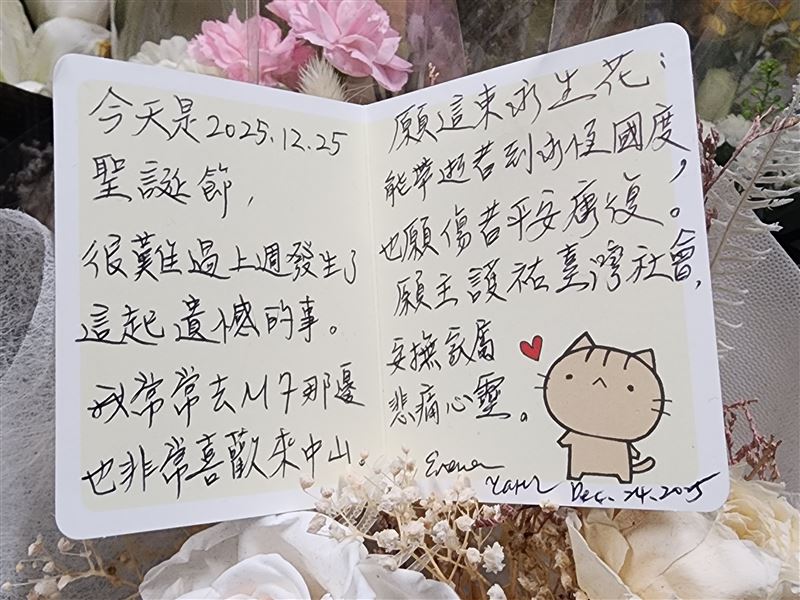 今天是2025.12.25
聖誕節,
很難過上週發生了
這起遺憾的事。
我常常去M7那邊
也非常喜歡來中山。
願這束永生花:
能帶逝者到永恆國度,
也願傷者平安康復。
願主護祐臺灣社會,
安撫家屬
悲痛心靈。
Dec. 24. 2025